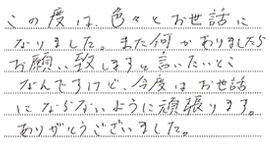 この度は、色々とお世話に
なりました。また何かありましたら
お願い致しますと言いたいとこ
なんですけど、今度はお世話
にならないように頑張ります。
ありがとうございました。